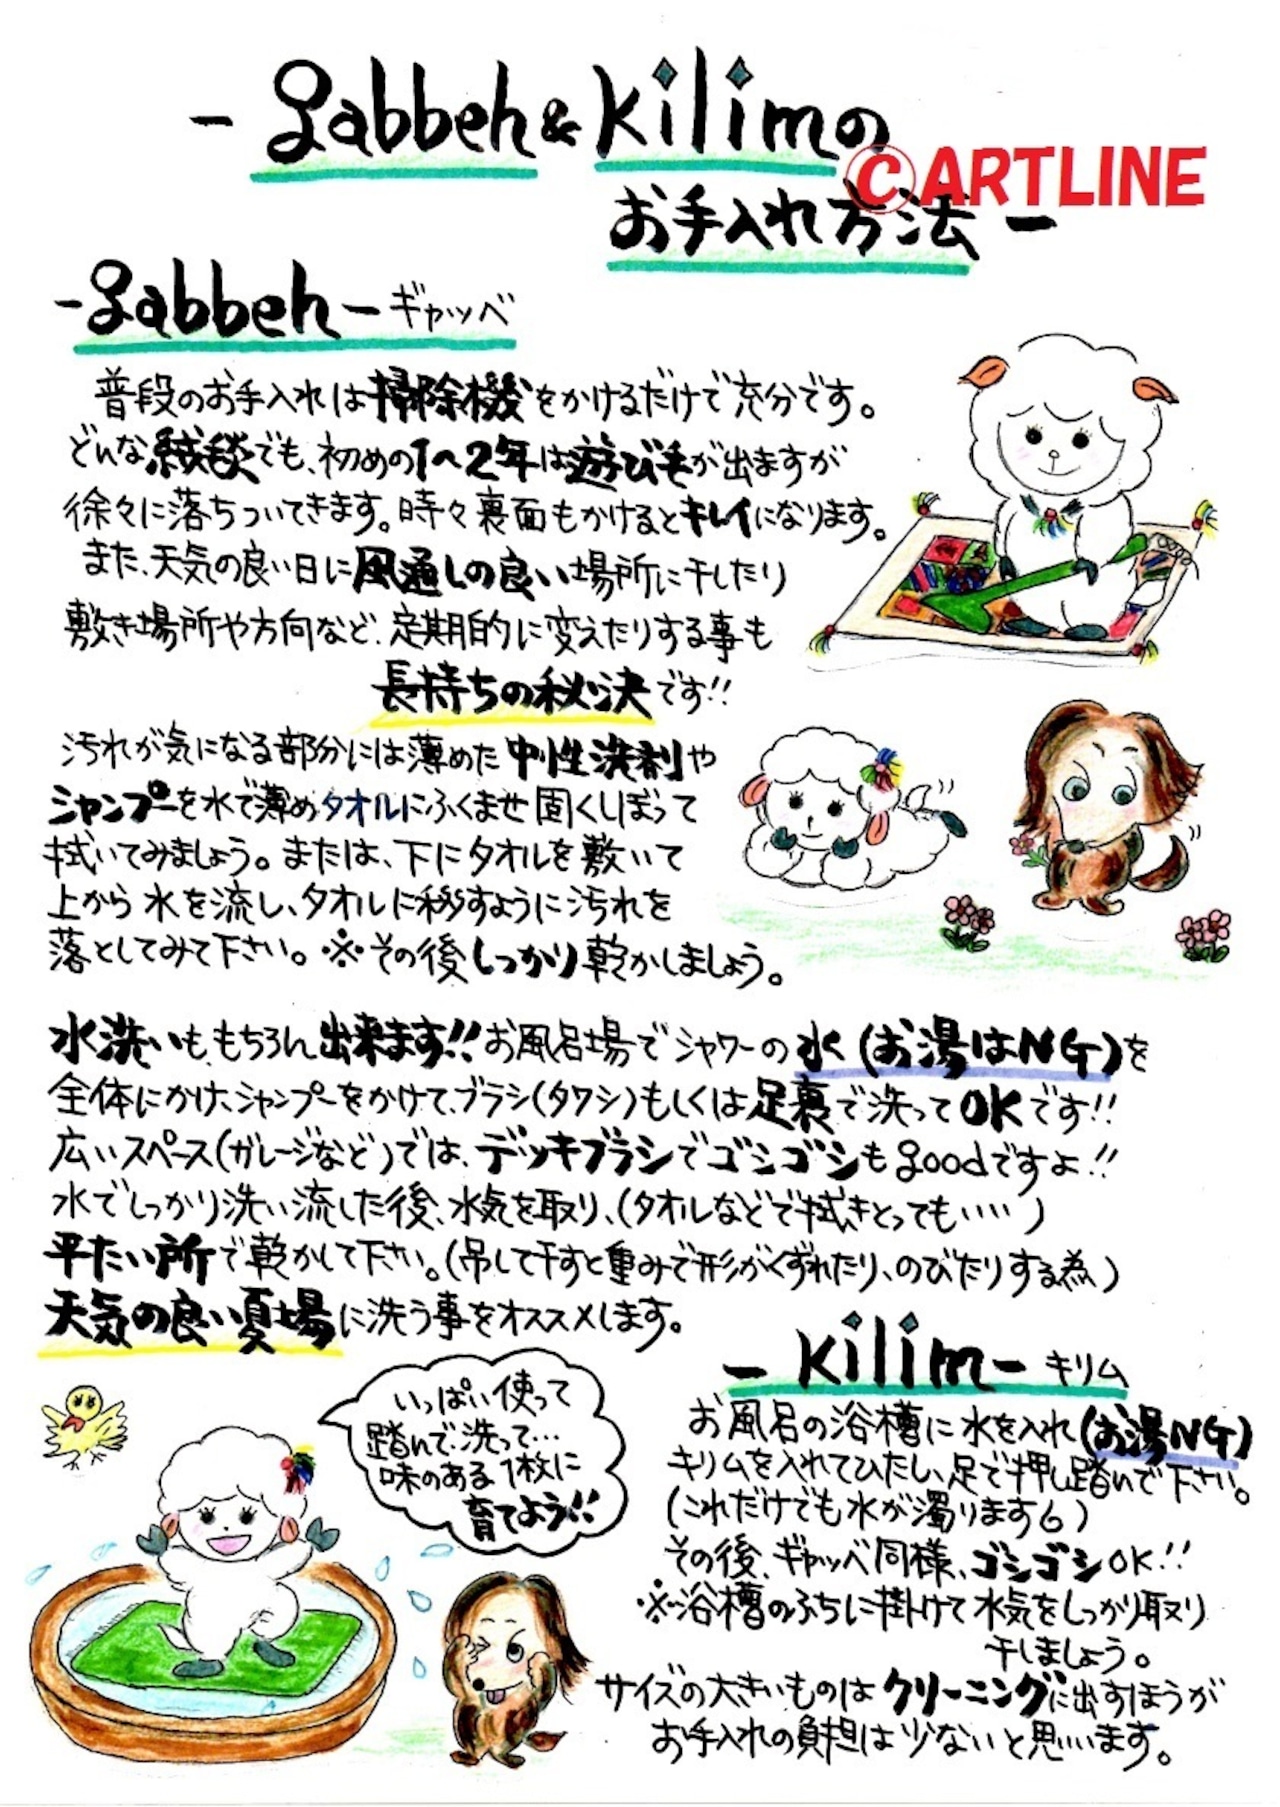 - gabbeh & kilimの
©ARTLINE
お手入れ方法 -
- gabbeh - ギャッベ
普段のお手入れは掃除機をかけるだけで充分です。
どんな絨毯でも、初めの1〜2年は遊び毛が出ますが
徐々に落ちついてきます。時々裏面もかけるとキレイになります。
また、天気の良い日に風通しの良い場所に干したり
敷き場所や方向など、定期的に変えたりする事も
長持ちの秘決です!!
汚れが気になる部分には薄めた中性洗剤や
シャンプーを水で薄めタオルにふくませ固くしぼって
拭いてみましょう。または、下にタオルを敷いて
上から水を流し、タオルに移すように汚れを
落としてみて下さい。※その後しっかり乾かしましょう。
水洗いももちろん出来ます!!お風呂場でシャワーの水(お湯はNG)を
全体にかけ、シャンプーをかけて、ブラシ(タワシ)もしくは足裏で洗ってOKです!!
広いスペース(ガレージなど)では、デッキブラシでゴシゴシもgoodですよ!!
水でしっかり洗い流した後、水気を取り、(タオルなどで拭きとっても‥‥)
平たい所で乾かして下さい。(吊して干すと重みで形がくずれたり、のびたりする為)
天気の良い夏場に洗う事をオススメします。
- kilim - キリム
お風呂の浴槽に水を入れ(お湯NG)
キリムを入れてひたし、足で押し踏んで下さい。
(これだけでも水が濁ります6)
その後、ギャッベ同様、ゴシゴシOK!!
※浴槽のふちに掛けて水気をしっかり取り
干しましょう。
サイズの大きいものはクリーニングに出すほうが
お手入れの負担は少ないと思います。
いっぱい使って
踏んで洗って…
味のある1枚に
育てよう!!